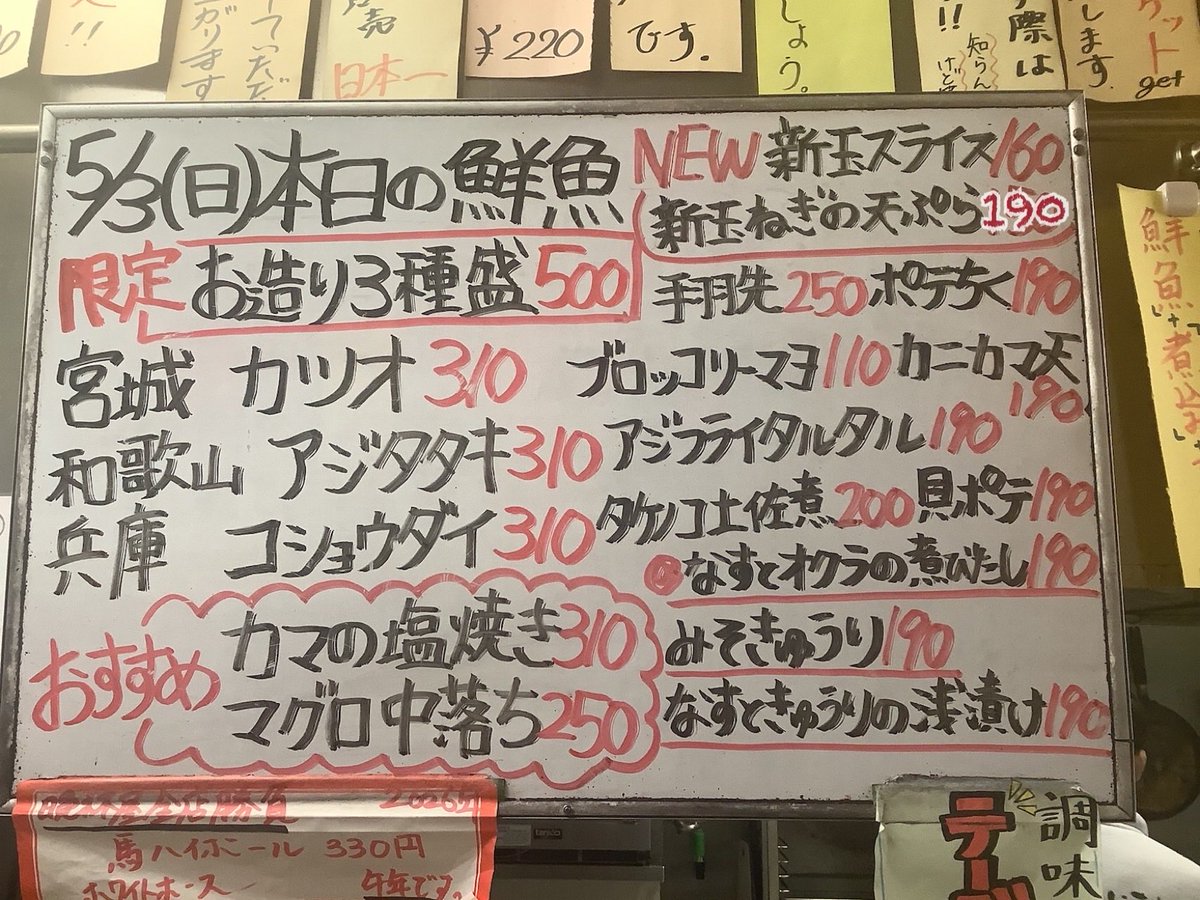 がります
ていただ
売
日本一
¥220
です.
しょう。
!!
際は
知らん
します.
ケット
get
5/3(日)本日の鮮魚
限定 お造り3種盛 500
宮城 カツオ 310
和歌山 アジタタキ 310
兵庫 コショウダイ 310
おすすめ
カマの塩焼き 310
マグロ中落ち 250
NEW 新玉スライス 160
新玉ねぎの天ぷら 190
手羽先 250 ポテちく 190
ブロッコリーマヨ 110 カニカマ天 190
アジフライタルタル 190
タケノコ土佐煮 200 貝ポテ 190
なすとオクラの煮びたし 190
みそきゅうり 190
なすときゅうりの浅漬け 190
鮮魚
煮
2026年
馬ハイボール 330円
ホワイトホース
午年です。
調味
テー